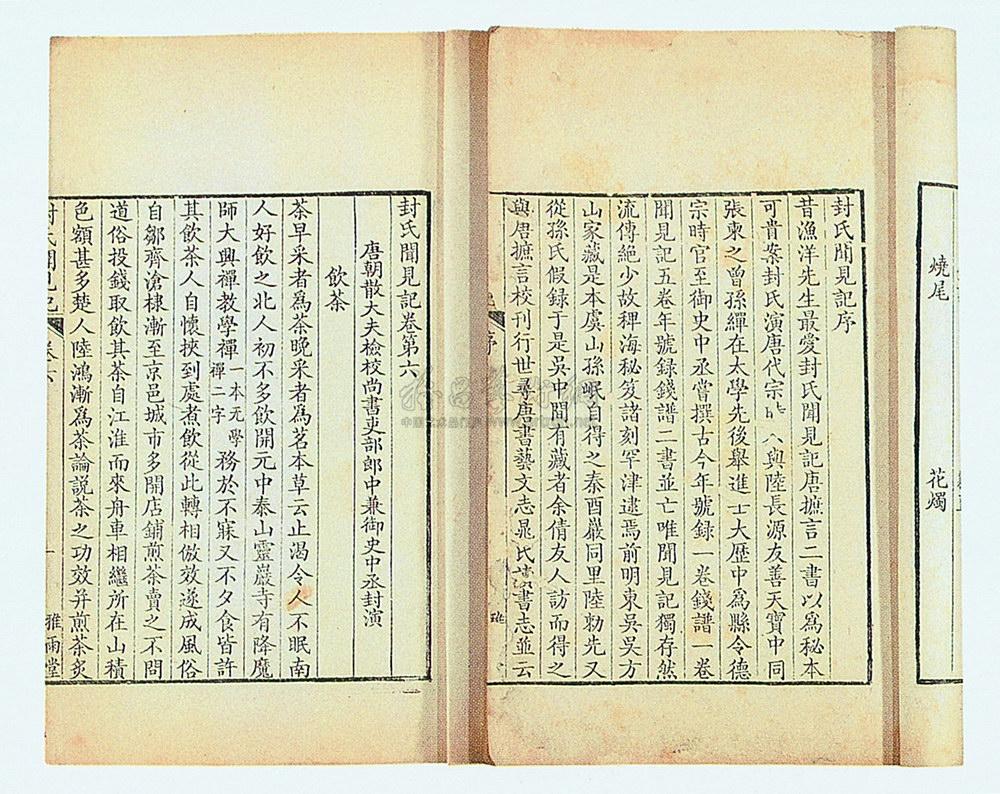 燒尾
花燭
封氏聞見記序
昔漁洋先生最愛封氏聞見記唐摭言二書以為秘本
可貴案封氏演唐代宗 與陸長源友善天寶中同
張柬之曾孫繟在太學先後舉進士大歷中為縣令德
宗時官至御史中丞嘗撰古今年號録一卷錢譜一卷
聞見記五卷年號録錢譜二書並亡唯聞見記獨存然
流傳絶少故稗海秘笈諸刻罕津逮焉前明東吳吳方
山家藏是本虞山孫岷自得之秦酉巖同里陸勑先又
從孫氏假録于是吳中間有藏者余倩友人訪而得之
與唐摭言校刊行世尋唐書藝文志晁氏讀書志並云
序
封氏聞見記卷第六
唐朝散大夫檢校尚書吏部郎中兼御史中丞封演
飲茶
茶早采者為茶晚采者為茗本草云止渴令人不眠南
人好飲之北人初不多飲開元中泰山靈巖寺有降魔
師大興禪教學禪一本元學禪二字務於不寐又不夕食皆許
其飲茶人自懷挾到處煮飲從此轉相倣效遂成風俗
自鄒齊滄棣漸至京邑城市多開店鋪煎茶賣之不問
道俗投錢取飲其茶自江淮而來舟車相繼所在山積
色額甚多楚人陸鴻漸為茶論説茶之功效并煎茶炙
封氏聞見記 卷六 一 雅雨堂